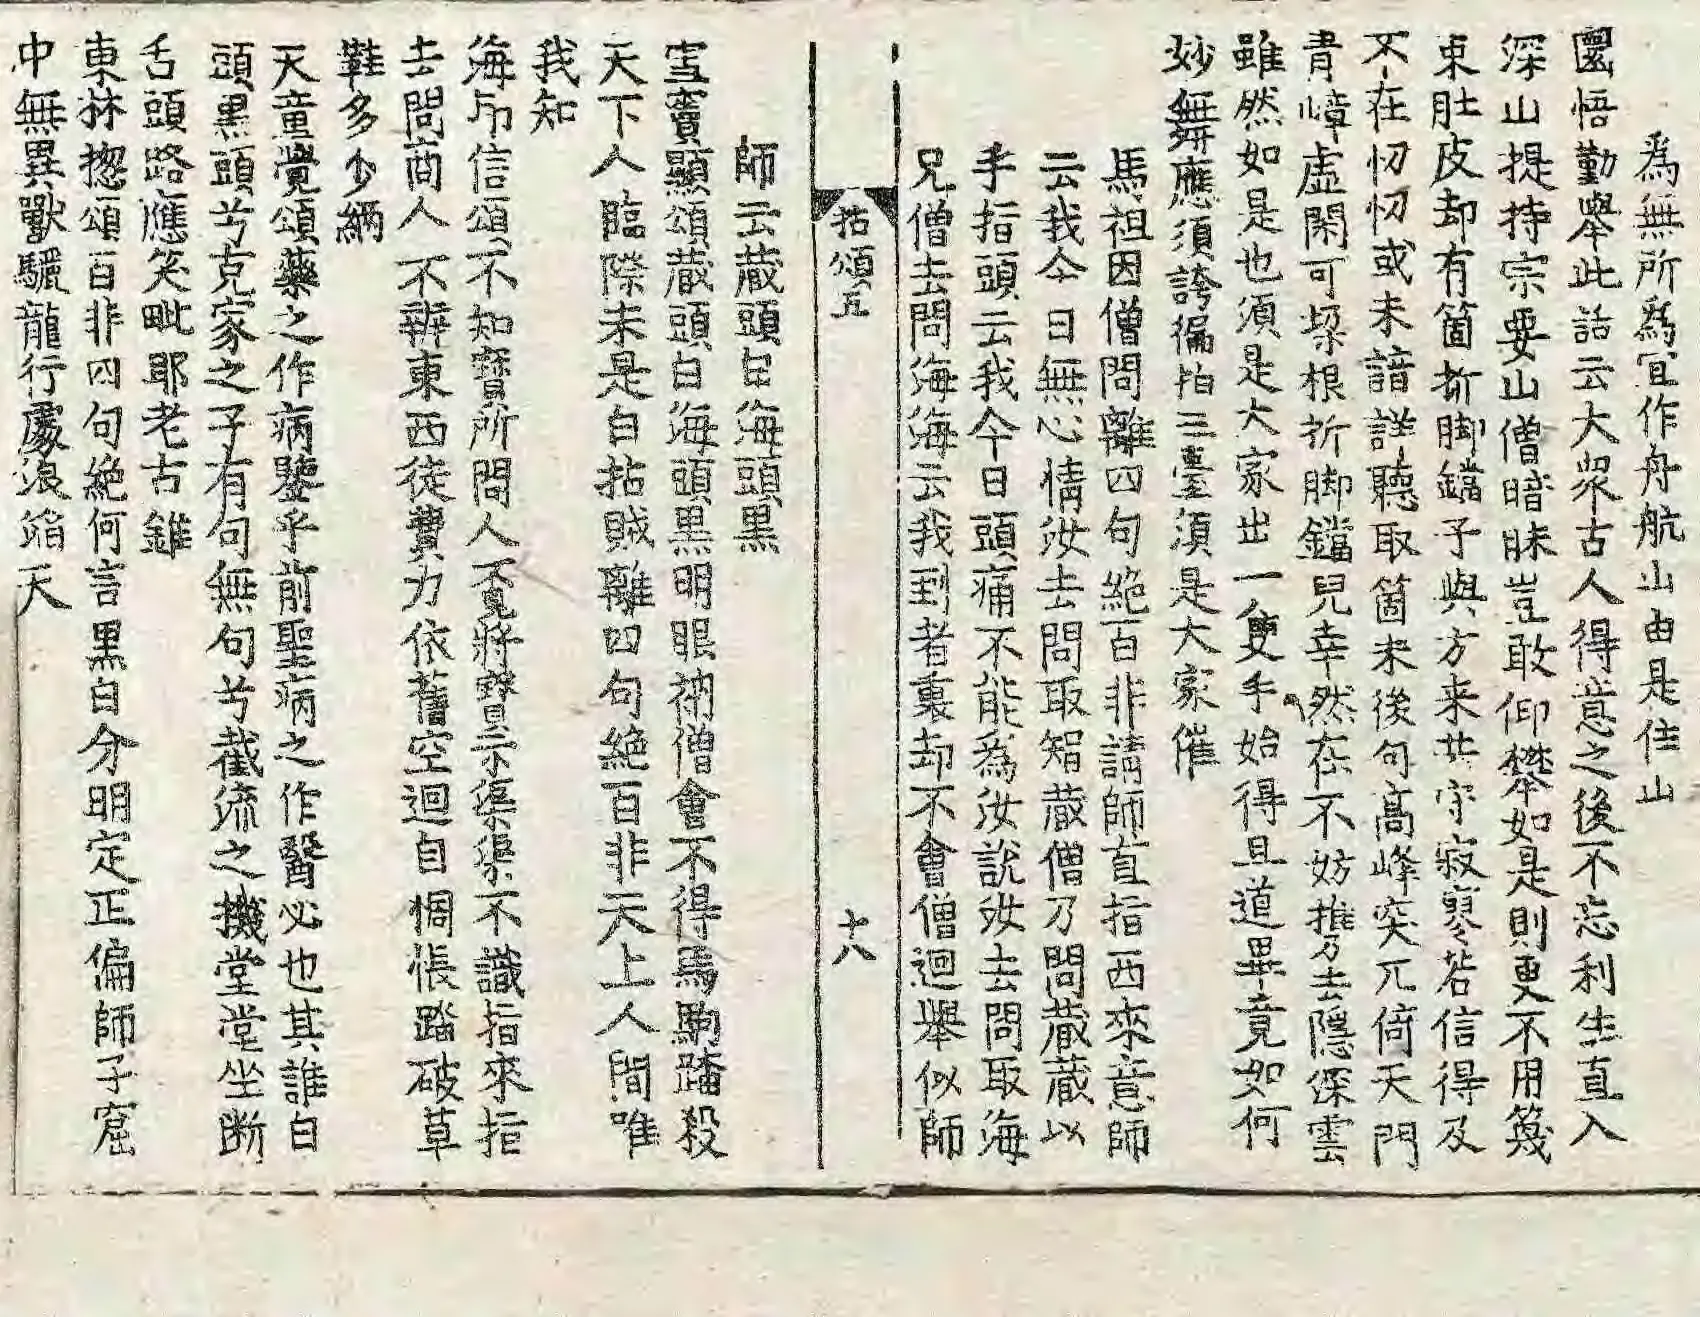 爲無所爲宜作舟航山由是住山
圜悟勤舉此話云大衆古人得意之後不忘利生直入
深山提持宗要山僧暗昧豈敢仰攀如是則更不用篾
束肚皮却有箇折脚鐺子與方来共守寂寥若信得及
不在忉忉或未諳詳聽取箇末後句高峰突兀倚天門
青嶂虚閑可架根折脚鐺兒幸然在不妨携去隱深雲
雖然如是也須是大家出一隻手始得且道畢竟如何
妙舞應須誇徧拍三臺須是大家催
馬祖因僧問離四句絶百非請師直指西來意師
云我今日無心情汝去問取智藏僧乃問藏藏以
手指頭云我今日頭痛不能為汝說汝去問取海
兄僧去問海海云我到者裏却不會僧迴舉似師
拈頌五
十八
師云藏頭白海頭黒
雪竇顯頌藏頭白海頭黒明眼衲僧會不得馬駒踏殺
天下人臨際未是白拈賊離四句絶百非天上人間唯
我知
海印信頌不知寶所問人覔將寶呈示渠渠不識指來指
去問商人不辨東西徒費力依舊空迴自惆悵踏破草
鞋多少緉
天童覺頌藥之作病鑒乎前聖病之作醫必也其誰白
頭黒頭兮克家之子有句無句兮截流之機堂堂坐斷
舌頭路應笑毗耶老古錐
東林揔頌百非四句絶何言黒白分明定正偏師子窟
中無異獸驪龍行處浪滔天